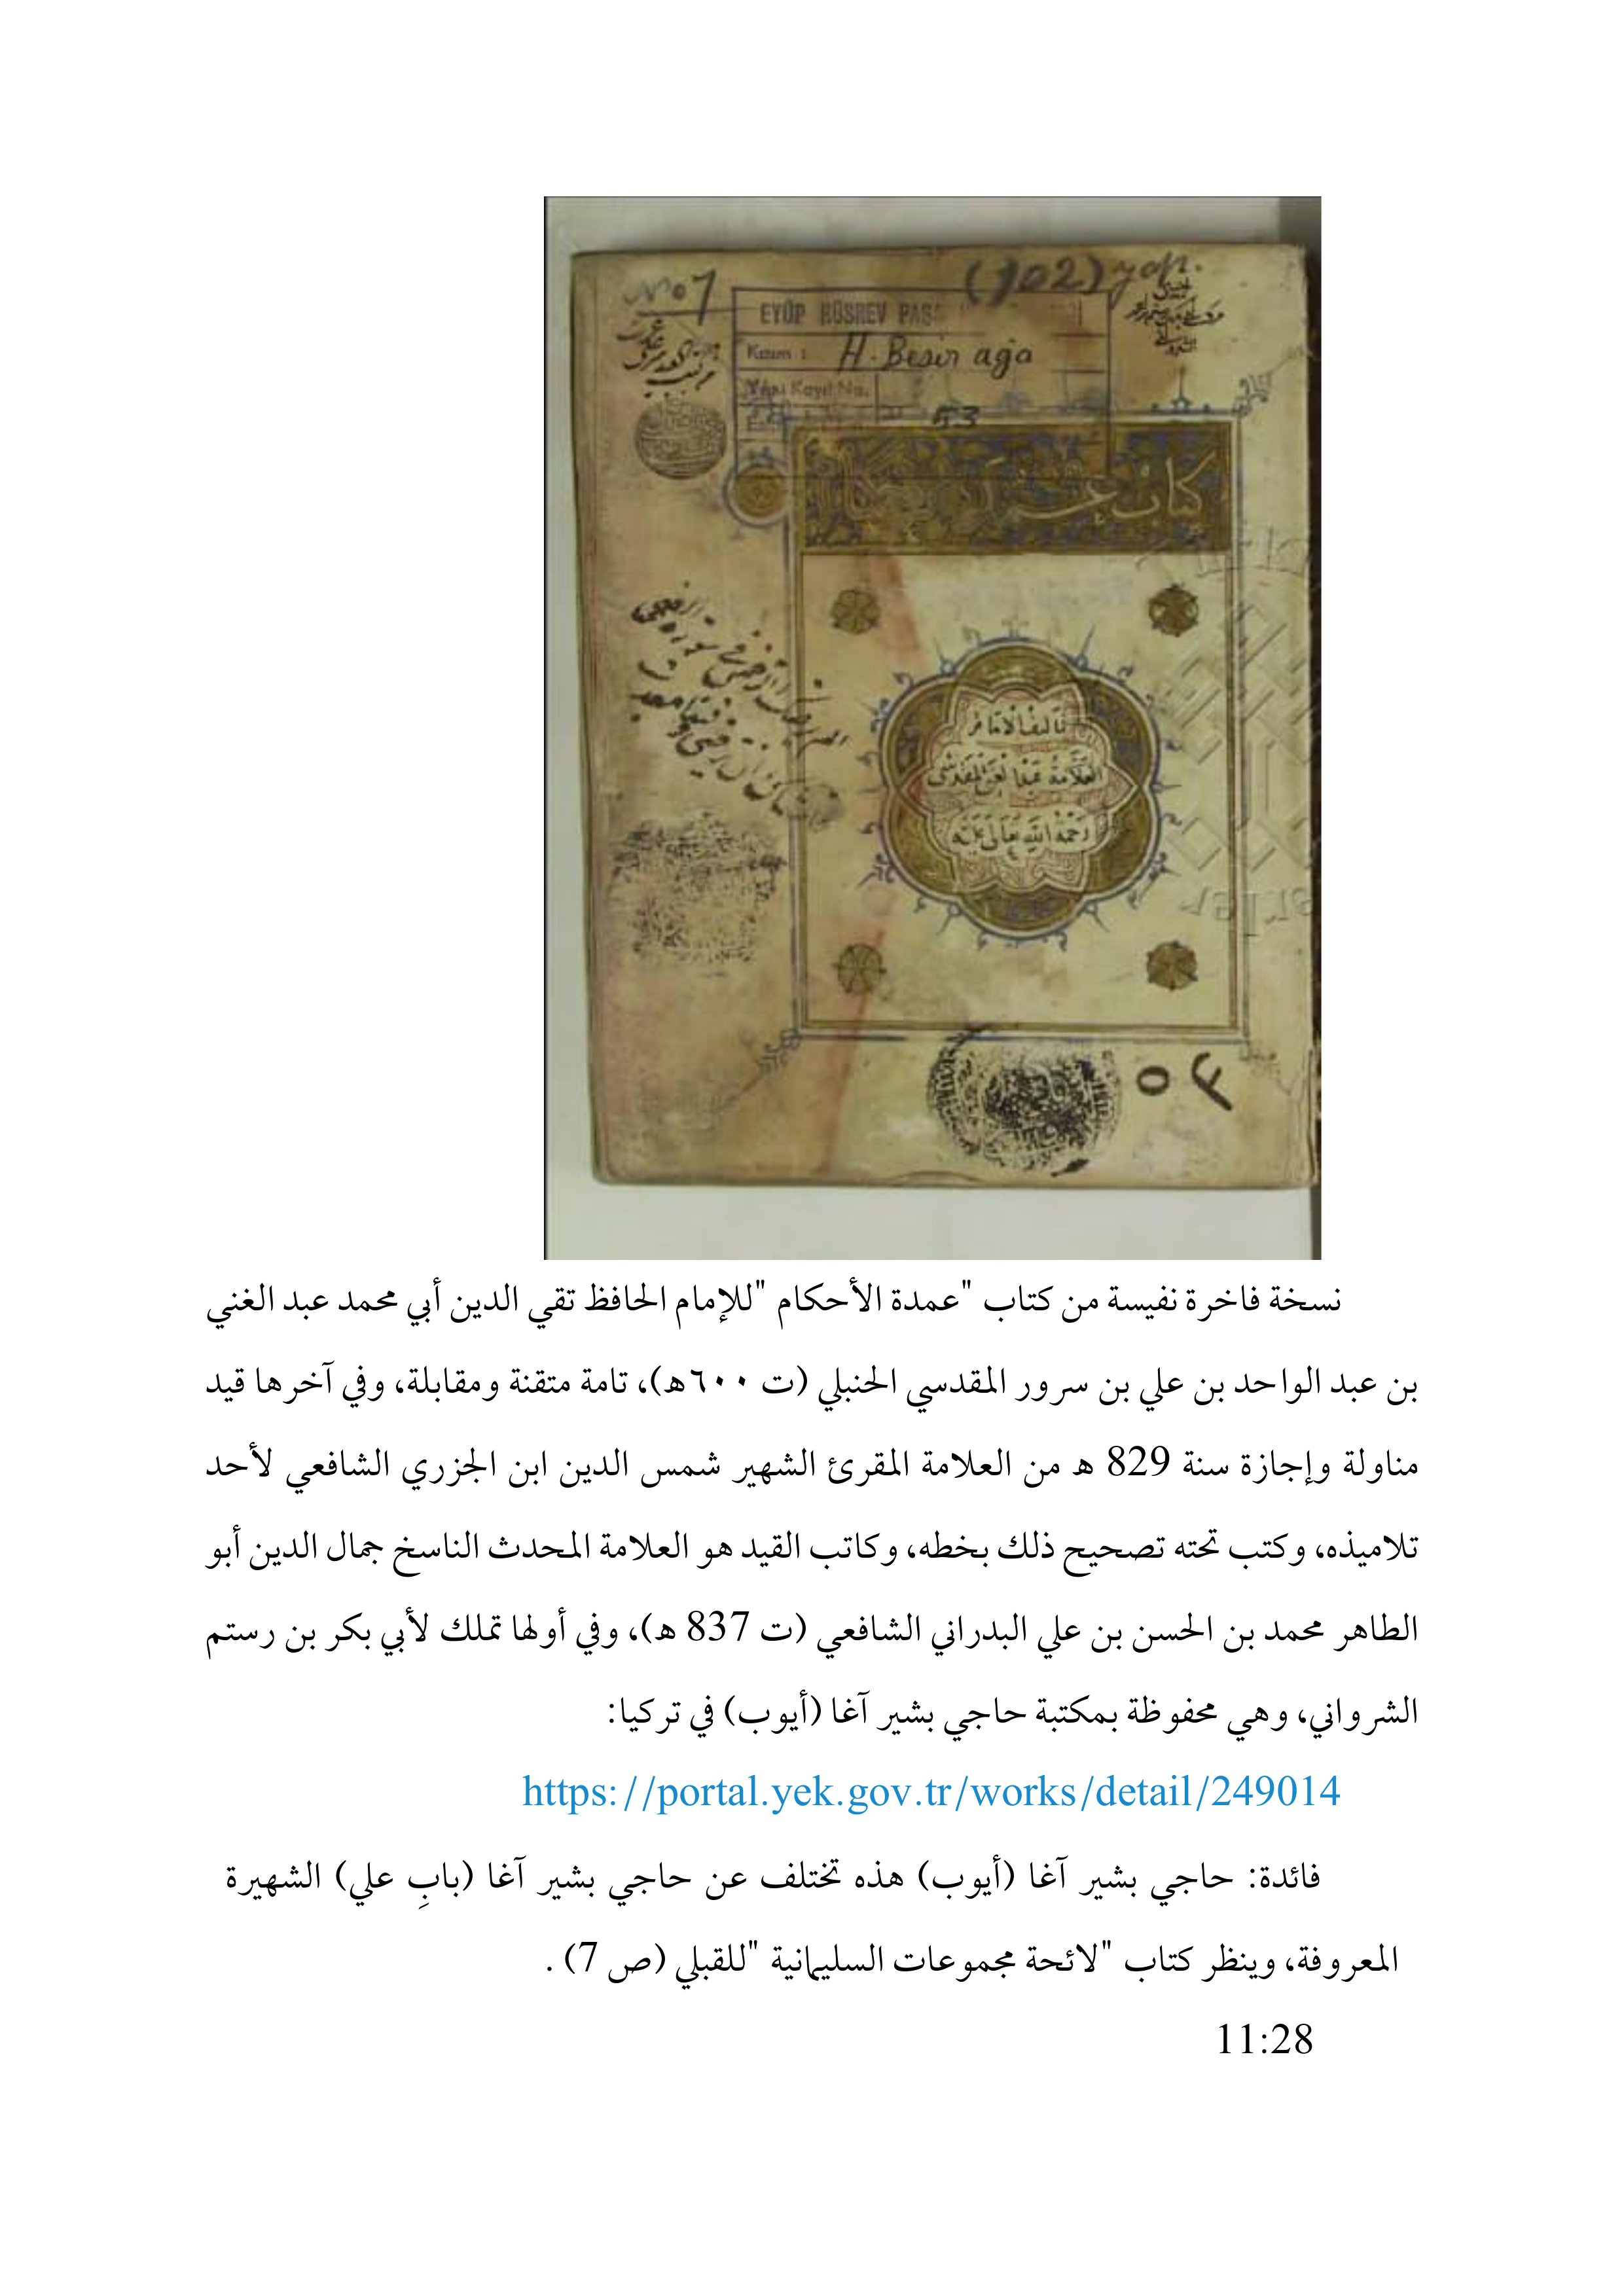 (102) yap.
No 7
EYÜP HÜSREV PAŞ
Kısım : H. Beşir ağa
Yeni Kayıt No.
53
كتاب عمدة الأحكام
تأليف الإمام
العلامة عبد الغني المقدسي
رحمة الله تعالى عليه
نسخة فاخرة نفيسة من كتاب "عمدة الأحكام "للإمام الحافظ تقي الدين أبي محمد عبد الغني
بن عبد الواحد بن علي بن سرور المقدسي الحنبلي (ت ٦٠٠ه)، تامة متقنة ومقابلة، وفي آخرها قيد
مناولة وإجازة سنة 829 ه من العلامة المقرئ الشهير شمس الدين ابن الجزري الشافعي لأحد
تلاميذه، وكتب تحته تصحيح ذلك بخطه، وكاتب القيد هو العلامة المحدث الناسخ جمال الدين أبو
الطاهر محمد بن الحسن بن علي البدراني الشافعي (ت 837 ه)، وفي أولها تملك لأبي بكر بن رستم
الشرواني، وهي محفوظة بمكتبة حاجي بشير آغا (أيوب) في تركيا:
https://portal.yek.gov.tr/works/detail/249014
فائدة: حاجي بشير آغا (أيوب) هذه تختلف عن حاجي بشير آغا (بابِ علي) الشهيرة
المعروفة، وينظر كتاب "لائحة مجموعات السليمانية "للقبلي (ص 7) .
11:28